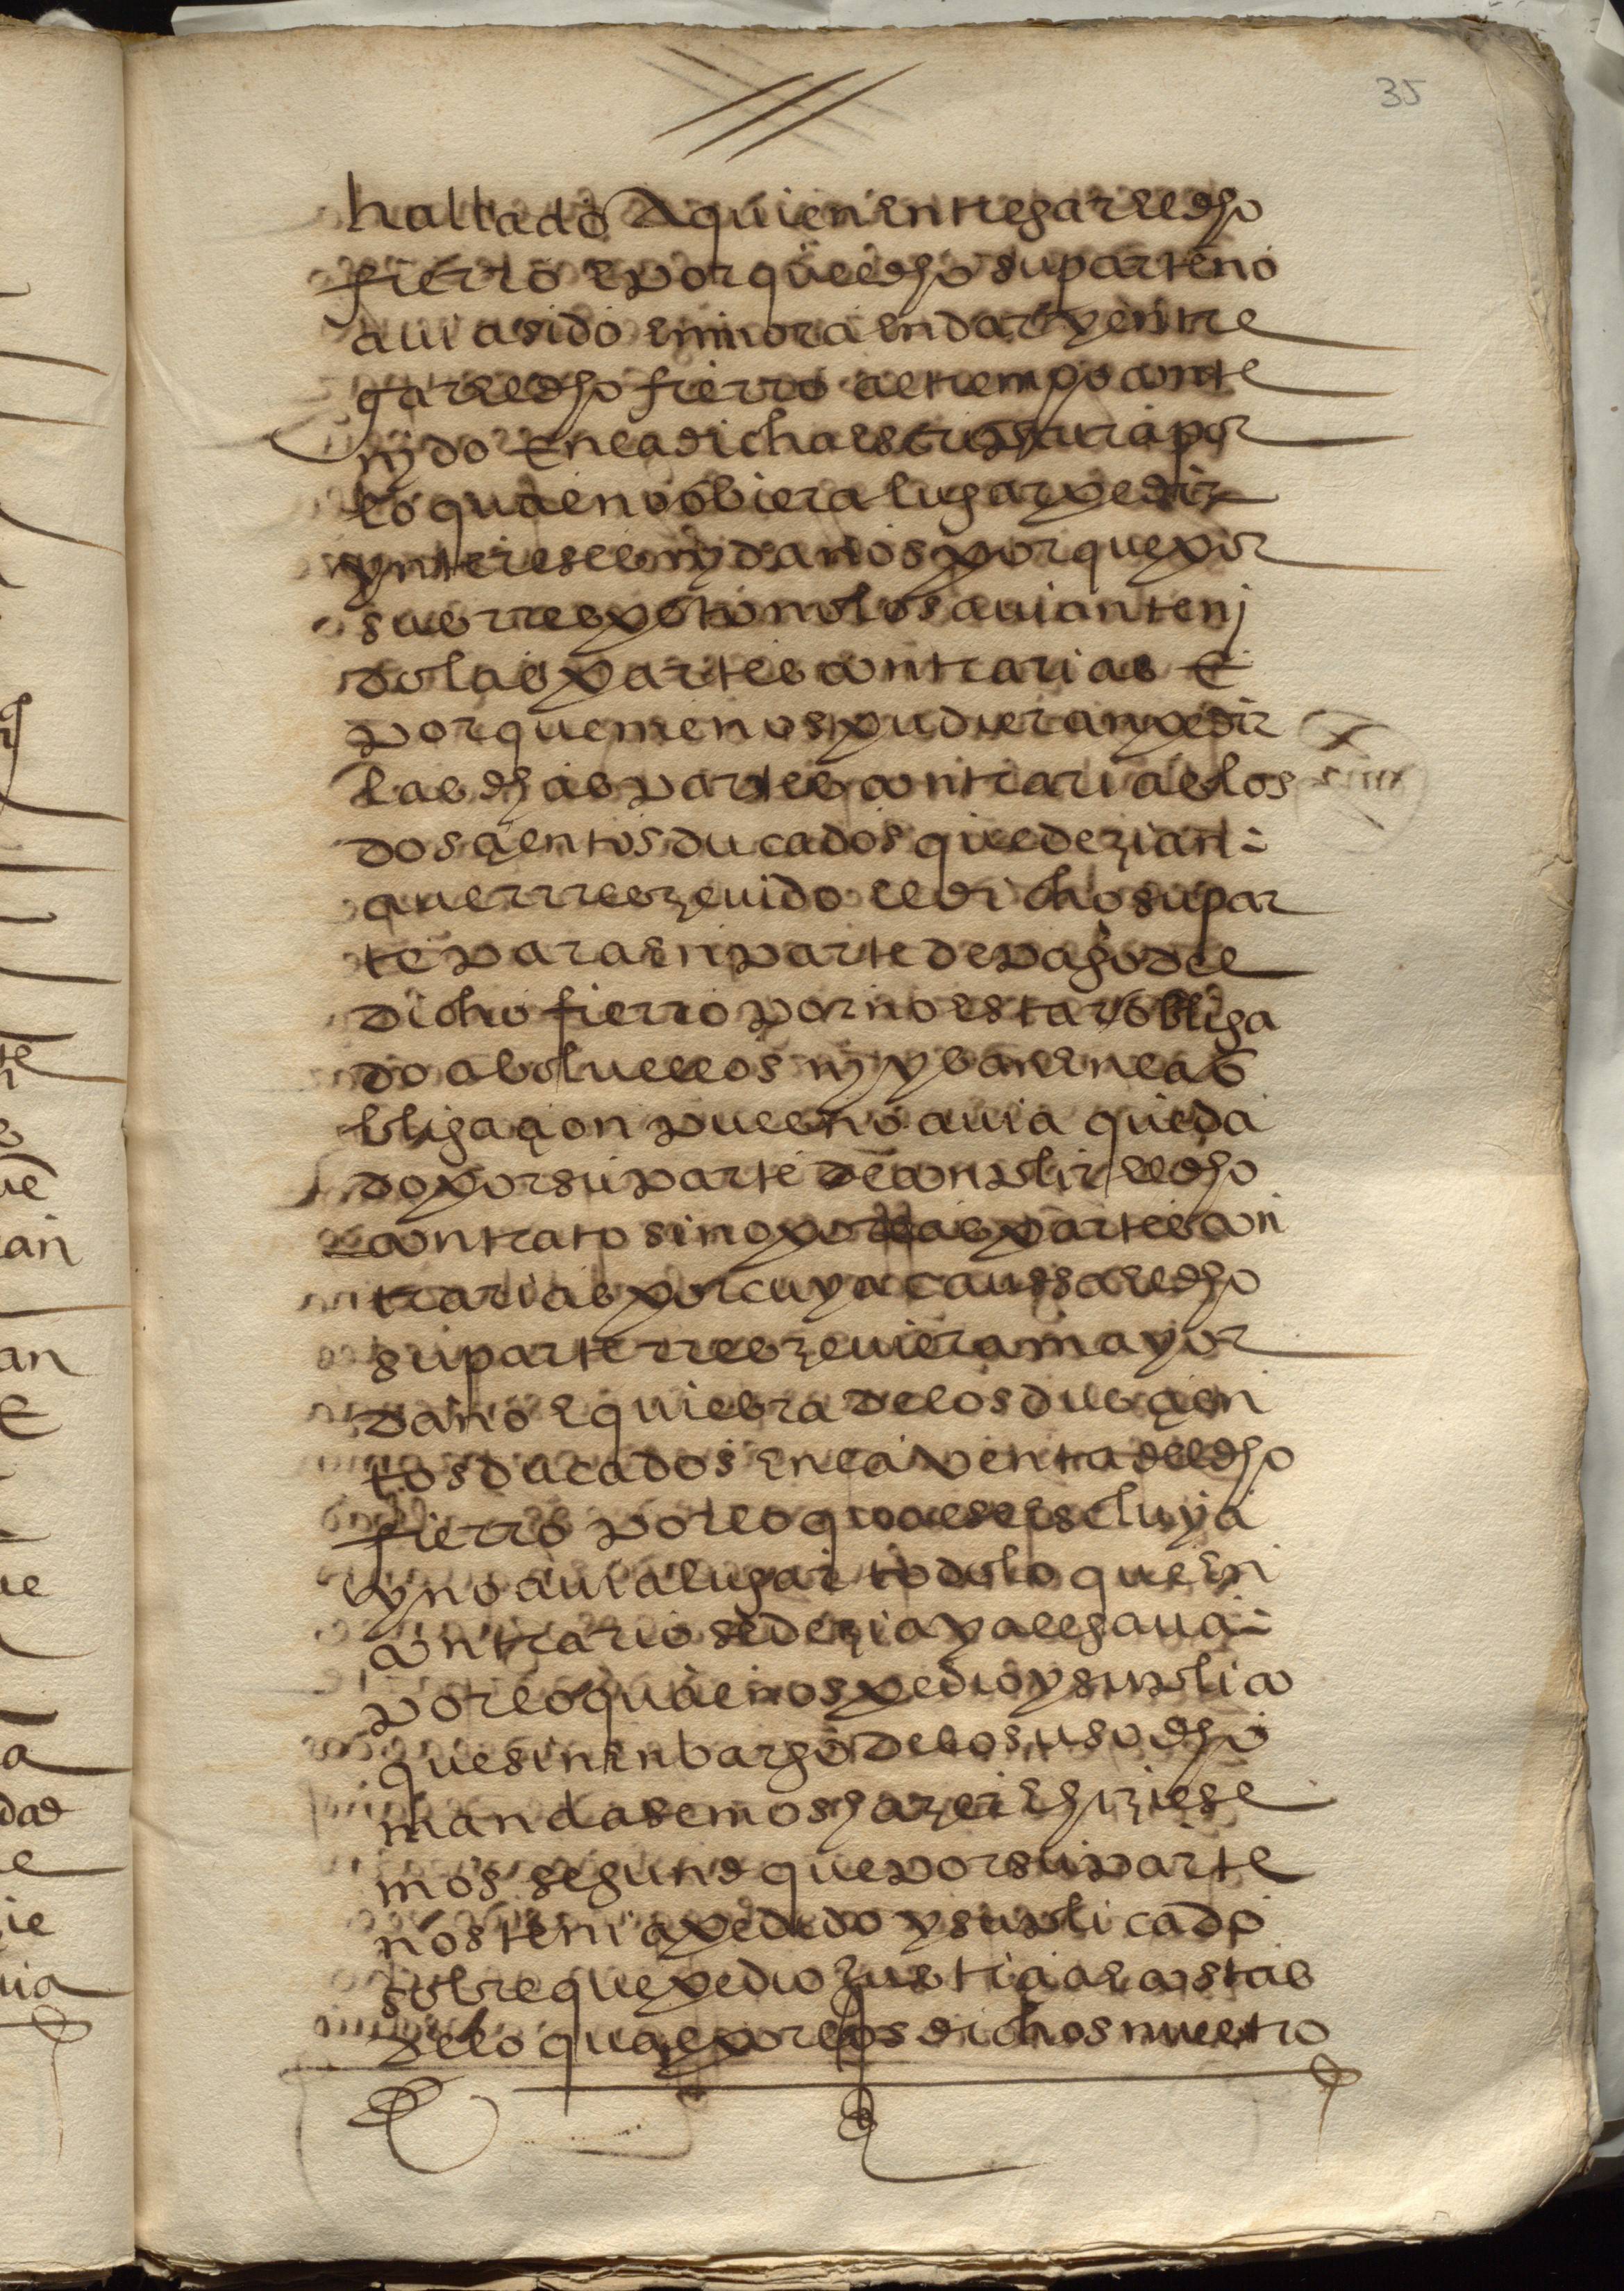 35
hallado a quien entregar el dho
fierro e porque el dho su parte no
auia sido en mora en dar y entre
gar el dho fierro al tiempo conte
nydo en la dicha escriptura por
lo qual no obiera lugar pedir
yntereses ny daños porque por
su respeto no los auian teni
do las partes contrarias e
porque menos pudieran pedir
las dhas partes contrarias los
dosçientos ducados que dezian
auer rresçeuido el dicho su par
te para en parte de pago del
dicho fierro por no estar obliga
do a boluellos ny yban en la o
bligaçion pues no auia queda
do por su parte de conplir el dho
contrato sino por las partes con
trarias por cuya caussa el dho
su parte rresçeuiera mayor
daño e quiebra de los duçien
tos ducados en la venta del dho
fierro por lo qual se escluya
y no auia lugar todo lo que en
contrario se dezia y alegaua
por lo qual nos pedio y suplico
que sin enbargo de lo suso dho
mandasemos hazer e hiziese
mos segund que por su parte
nos tenia pedido y suplicado
sobre que pedio justiçia e costas
de lo qual por los dichos nuestro